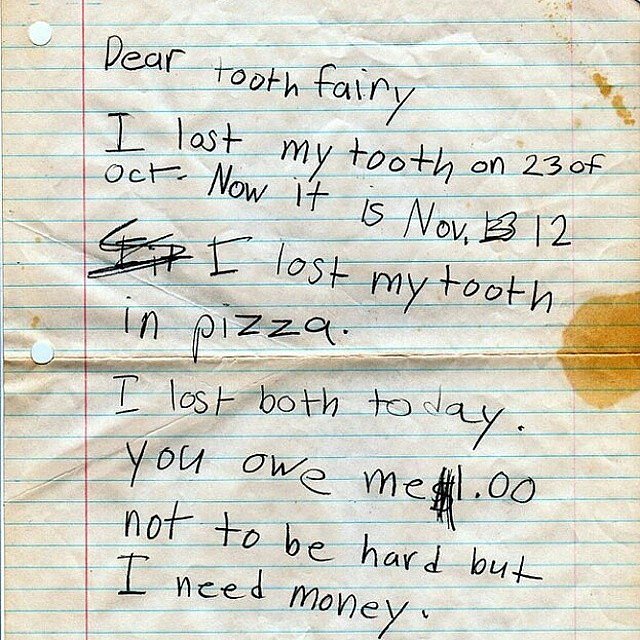 Dear tooth fairy
I lost my tooth on 23 of
oct. Now it is Nov. 12
I lost my tooth
in pizza.
I lost both today.
you owe me $1.00
not to be hard but
I need money.